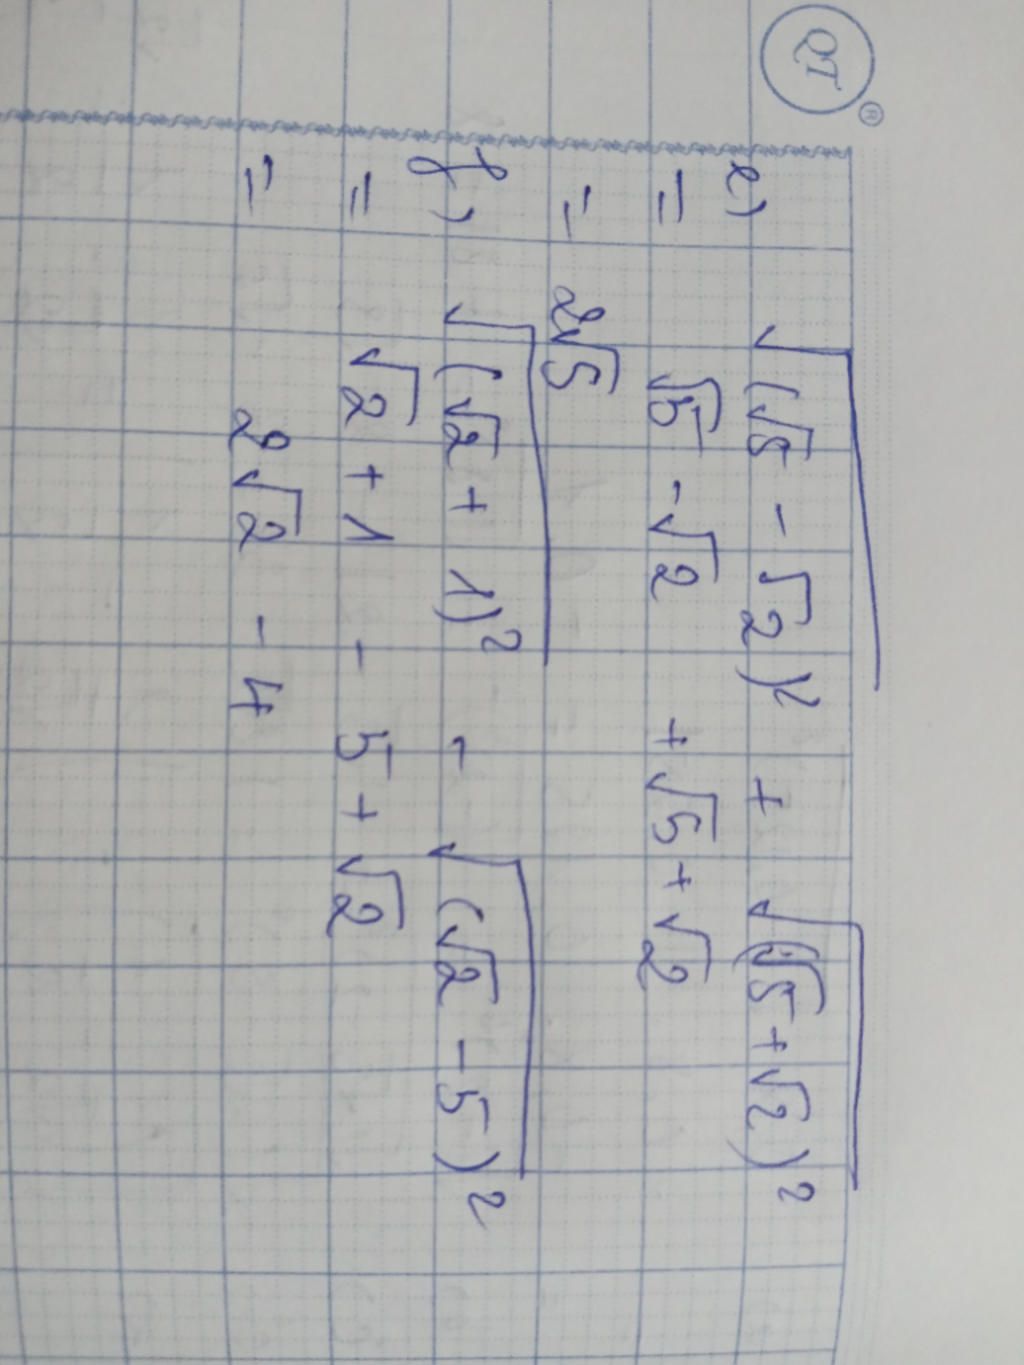 QT ®
e) √(√5 - √2)² + √(√5 + √2)²
= √5 - √2 + √5 + √2
= 2√5
f) √(√2 + 1)² - √(√2 - 5)²
= √2 + 1 - 5 + √2
= 2√2 - 4